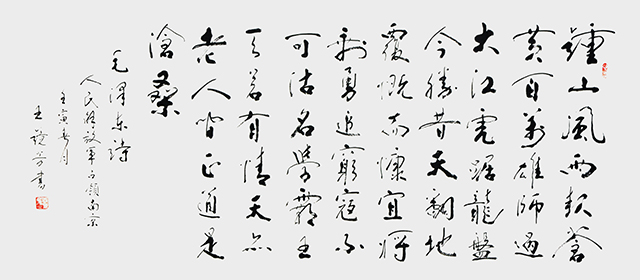 鍾山風雨起蒼
黄百萬雄師過
大江虎踞龍盤
今勝昔天翻地
覆慨而慷宜將
剩勇追窮寇不
可沽名學霸王
天若有情天亦
老人间正道是
滄桑
毛澤東詩
人民解放軍占領南京
壬寅春月